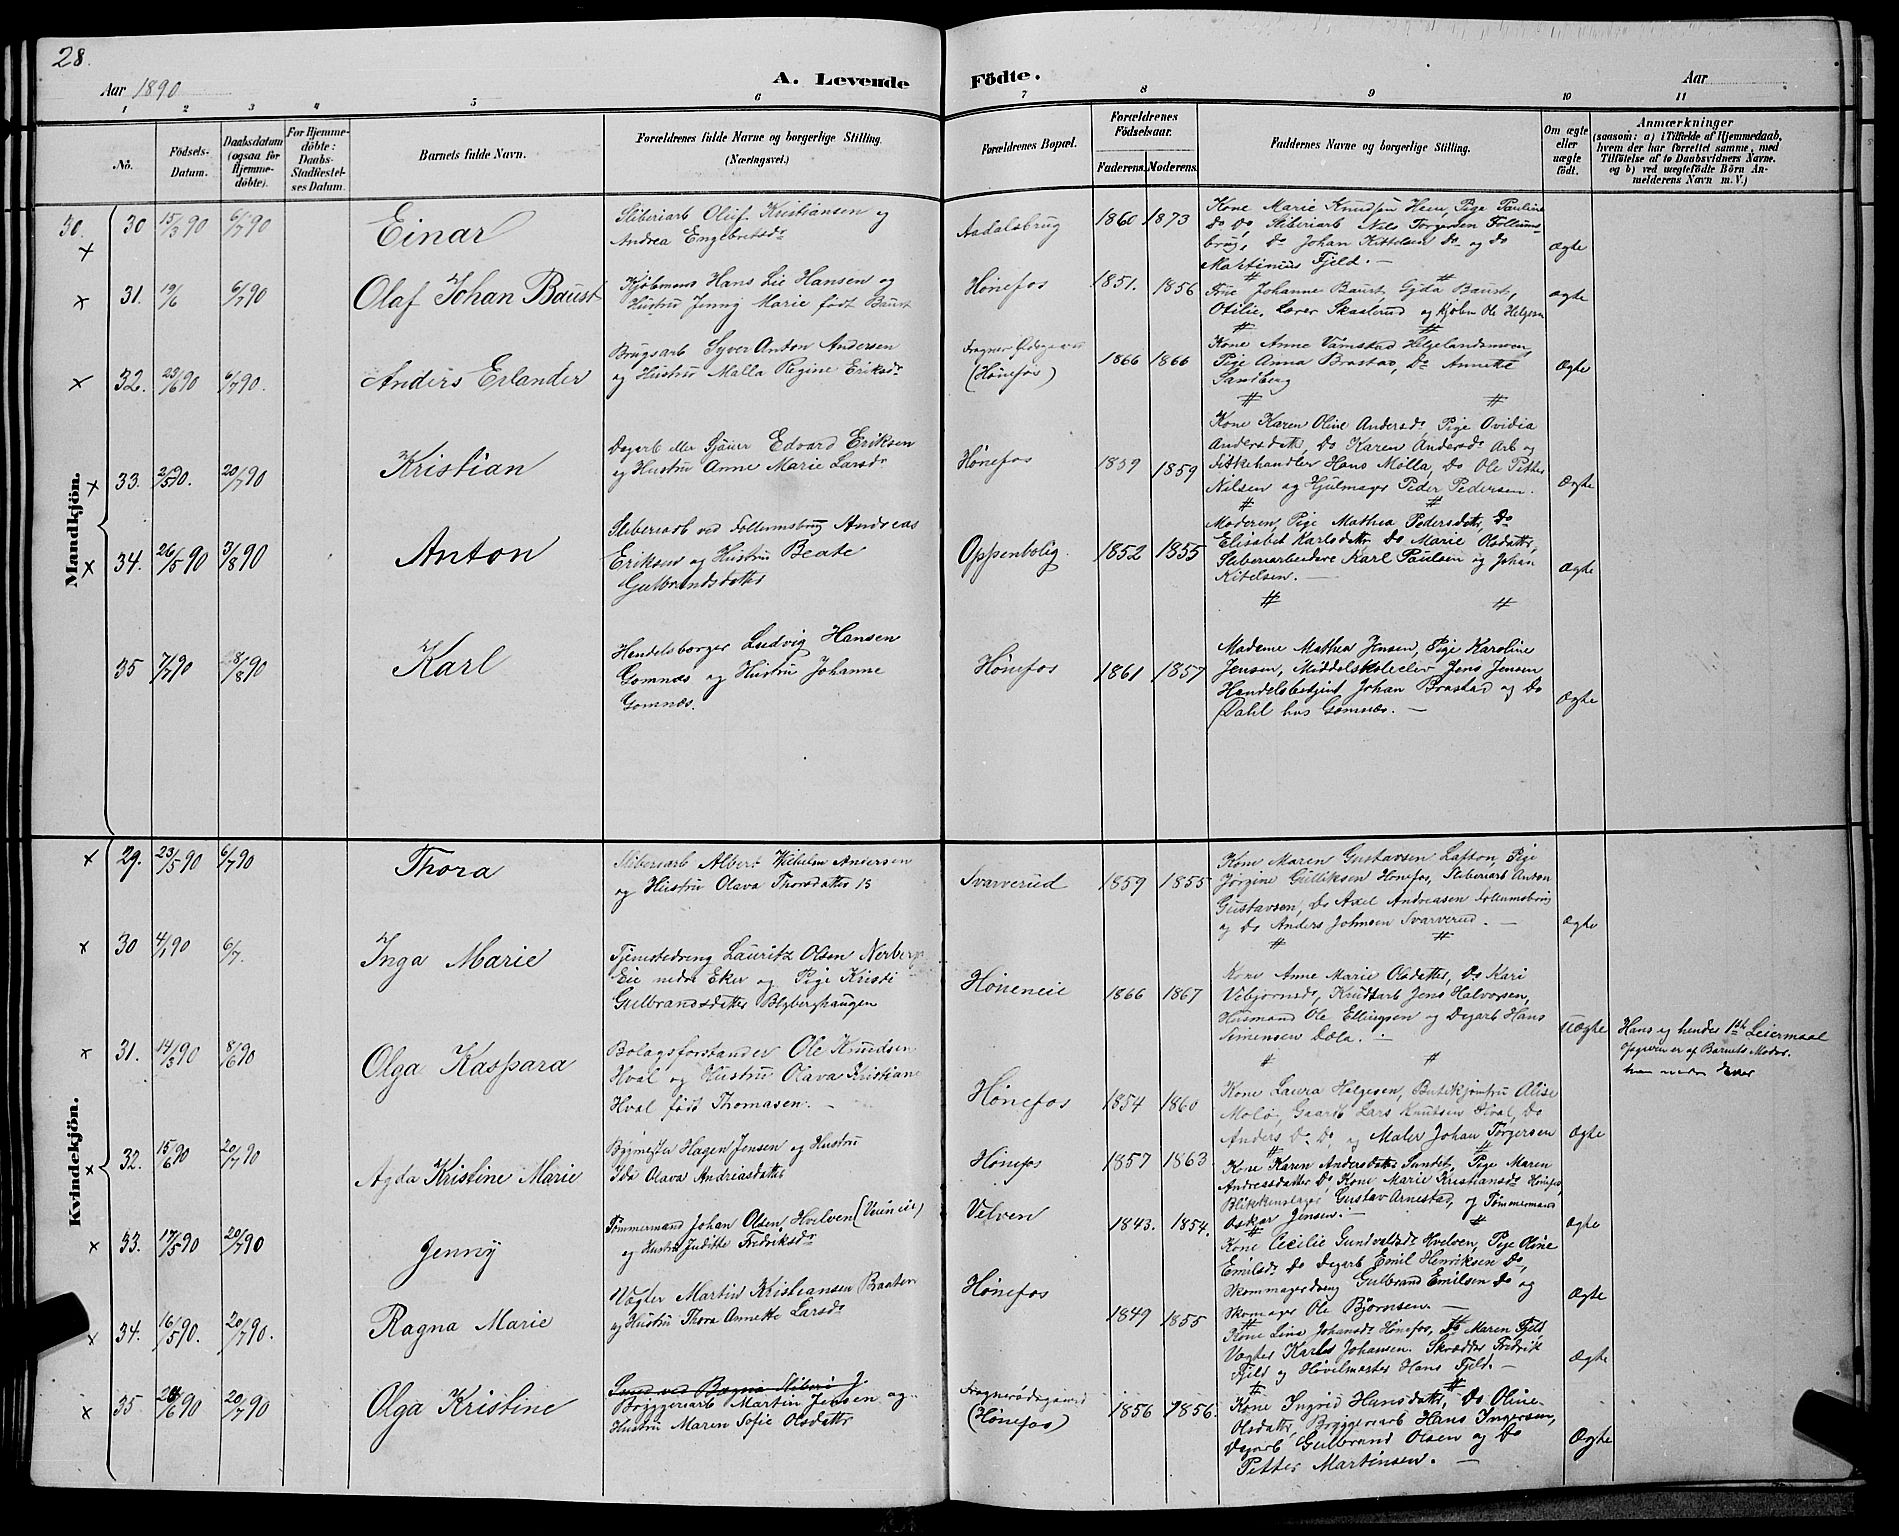 28.
Aar 1890
A. Levende
Födte.
Aar
1 2 3 4 5 6 7 8 9 10 11
No.
Födsels-Datum.
Daabsdatum (ogsaa for Hjemme-döbte).
For Hjemme-döbte: Daabs-Stadfæstel-ses Datum.
Barnets fulde Navn.
Forældrenes fulde Navne og borgerlige Stilling.
(Næringsvei.)
Forældrenes Bopæl.
Forældrenes Födselsaar.
Faderens. Moderens.
Faddernes Navne og borgerlige Stilling.
Om ægte eller uægte födt.
Anmærkninger
(saasom: a) i Tilfælde af Hjemmedaab,
hvem der har forrettet samme, med
Tilföielse af to Daabsvidners Navne.
og b) ved uægtefödte Börn An-
melderens Navn m. V.)
Mandkjön.
30. 30 15/3 90 6/7 90
Einar
Sliberiarb Oluf Kristiansen og
Andrea Engebretsdr
Aadalsbrug
1860 1873
Kone Marie Knudsen Heen, Pige Pauline
Do Do, Sliberiarb Nils Torgersen Follums-
brug, Do Johan Kittelsen Do og Do
Martinius Fjeld. —
Ægte
31. 19/6 6/7 90
Olaf Johan Baust
Kjøbmand Hans Lie Hansen og
Hustru Jenny Marie født Baust
Hønefos
1851. 1856
Frue Johanne Baust, Gyda Baust,
Otilie, Lærer Skaalerud og Kjøbm Ole Helgesen
Ægte
32. 23/6 90 6/7 90.
Anders Erlander
Brugsarb Syver Anton Andersen
og Hustru Malla Regine Eriksdr
(Hønefos)
1866 1866
Kone Anne Vamstad Helgelandsmoen,
Pige Anna Brastad, Do Annette
Sandberg
Ægte
33. 2/5 90. 20/7 90
Kristian
Dagarb eller Sjauer Edvard Eriksen
og Hustru Anne Marie Larsdr
Hønefos
1859 1859
Kone Karen Oline Andersdr Pige Ovidia
Andersdatter, Do Karen Andersdr Arb og
Fiskehandler Hans Molla, Do Ole Petter
Nilsen og Hjulmager Peder Pedersen.
Ægte
34. 26/5 90 3/8 90
Anton
Sliberiarb ved Follumsbrug Andreas
Eriksen og Hustru Beate
Gulbrandsdatter
Oppenbolig.
1852 1855
Moderen, Pige Mathea Pedersdatter, Do
Elisabet Karlsdatter Do Marie Olsdatter,
Sliberiarbeidere Karl Paulsen og Johan
Kitelsen. —
Ægte
35 7/7 90 8/8 90
Karl
Handelsborger Ludvig Hansen
Gomnæs og Hustru Johanne
Gomnæs.
Hønefos
1861 1857
Madame Mathea Jensen, Pige Karoline
Jensen, Middelskoleelev Jens Jensen
Handelsbetjent Johan Brastad og Do
Dahl hos Gomnæs. —
Ægte
Kvindekjön.
29. 23/5 90 6/7 90
Thora
Sliberiarb Albert Wilhelm Andersen
og Hustru Olava Thorsdatter
Svarverud
1859 1855
Kone Maren Gustavsen Lafton, Pige
Jørgine Gulliksen Hønefos, Sliberiarb Anton
Gustavsen, Do Axel Andreasen Follumsbrug
og Do Anders Johnsen Svarverud. —
Ægte
30 4/1 90 6/7.
Inga Marie
Tjenestedreng Lauritz Olsen Nerberg
Eie nedre Eker og Pige Kristi
Gulbrandsdatter Blybergshaugen
Høneneie
1866 1867
Kone Anne Marie Olsdatter, Do Kari
Vebjørnsdr, Krudtarb Jens Halvorsen,
Husmand Ole Ellingsen og Dagarb Hans
Simensen Dæla. —
uægte
Hans og hendes 1ste Leiermaal
Opgiven er af Barnets Moder.
31. 14/3 90 8/6 90
Olga Kaspara
Bolagsforstander Ole Knudsen
Hval og Hustru Olava Kristiane
Hval født Thomasen. —
Hønefos
1854 1860
Kone Laura Helgesen, Butikjomfru Alise
Molø, Gaardb Lars Knutsen Hval, Do
Anders Do Do og Maler Johan Torgersen
Ægte
32. 15/6 90 20/7 90
Agda Kristine Marie
Bygmester Hagen Jensen og Hustru
Ida Olava Andreasdatter
Hønefos
1857 1863
Kone Karen Andersdatter Sundet, Pige Maren
Andreasdatter, Do Kone Marie Kristiansdr Hønefos,
Blikkenslager Gustav Arnestad, og Tømmermand
Oskar Jensen. —
Ægte
33. 17/5 90 20/7 90
Jenny
Tømmermand Johan Olsen, Hvelven (Veieneie)
og Hustru Juditte Fredriksdr
Velven
1843. 1854.
Kone Cecilie Gundvaldsdr Hvelven, Pige Oline
Emilsdr Do Dagarb Emil Henriksen Do,
Skommagerdreng Gulbrand Emilsen Do og
Skomager Ole Bjørnsen. —
Ægte
34. 16/5 90. 20/7 90.
Ragna Marie
Vægter Martin Kristiansen Braaten
og Hustru Thora Annette Larsdr
Hønefos
1849 1855
Kone Lina Johansdr Hønefos, Do Maren Fjeld,
Vægter Karles Johansen. Skrædder Fredrik
Fjeld og Høvelmester Hans Fjeld. —
Ægte
35. 20/6 90 20/7 90
Olga Kristine
Bryggeriarb Martin Jensen og
Hustru Maren Sofie Olsdatter
(Hønefos)
1856 1856.
Kone Ingrid Hansdatter, Do Oline
Olsdatter, Bryggeriarb Hans Ingersen,
Dagarb Gulbrand Olsen og Do
Petter Martinsen. —
Ægte